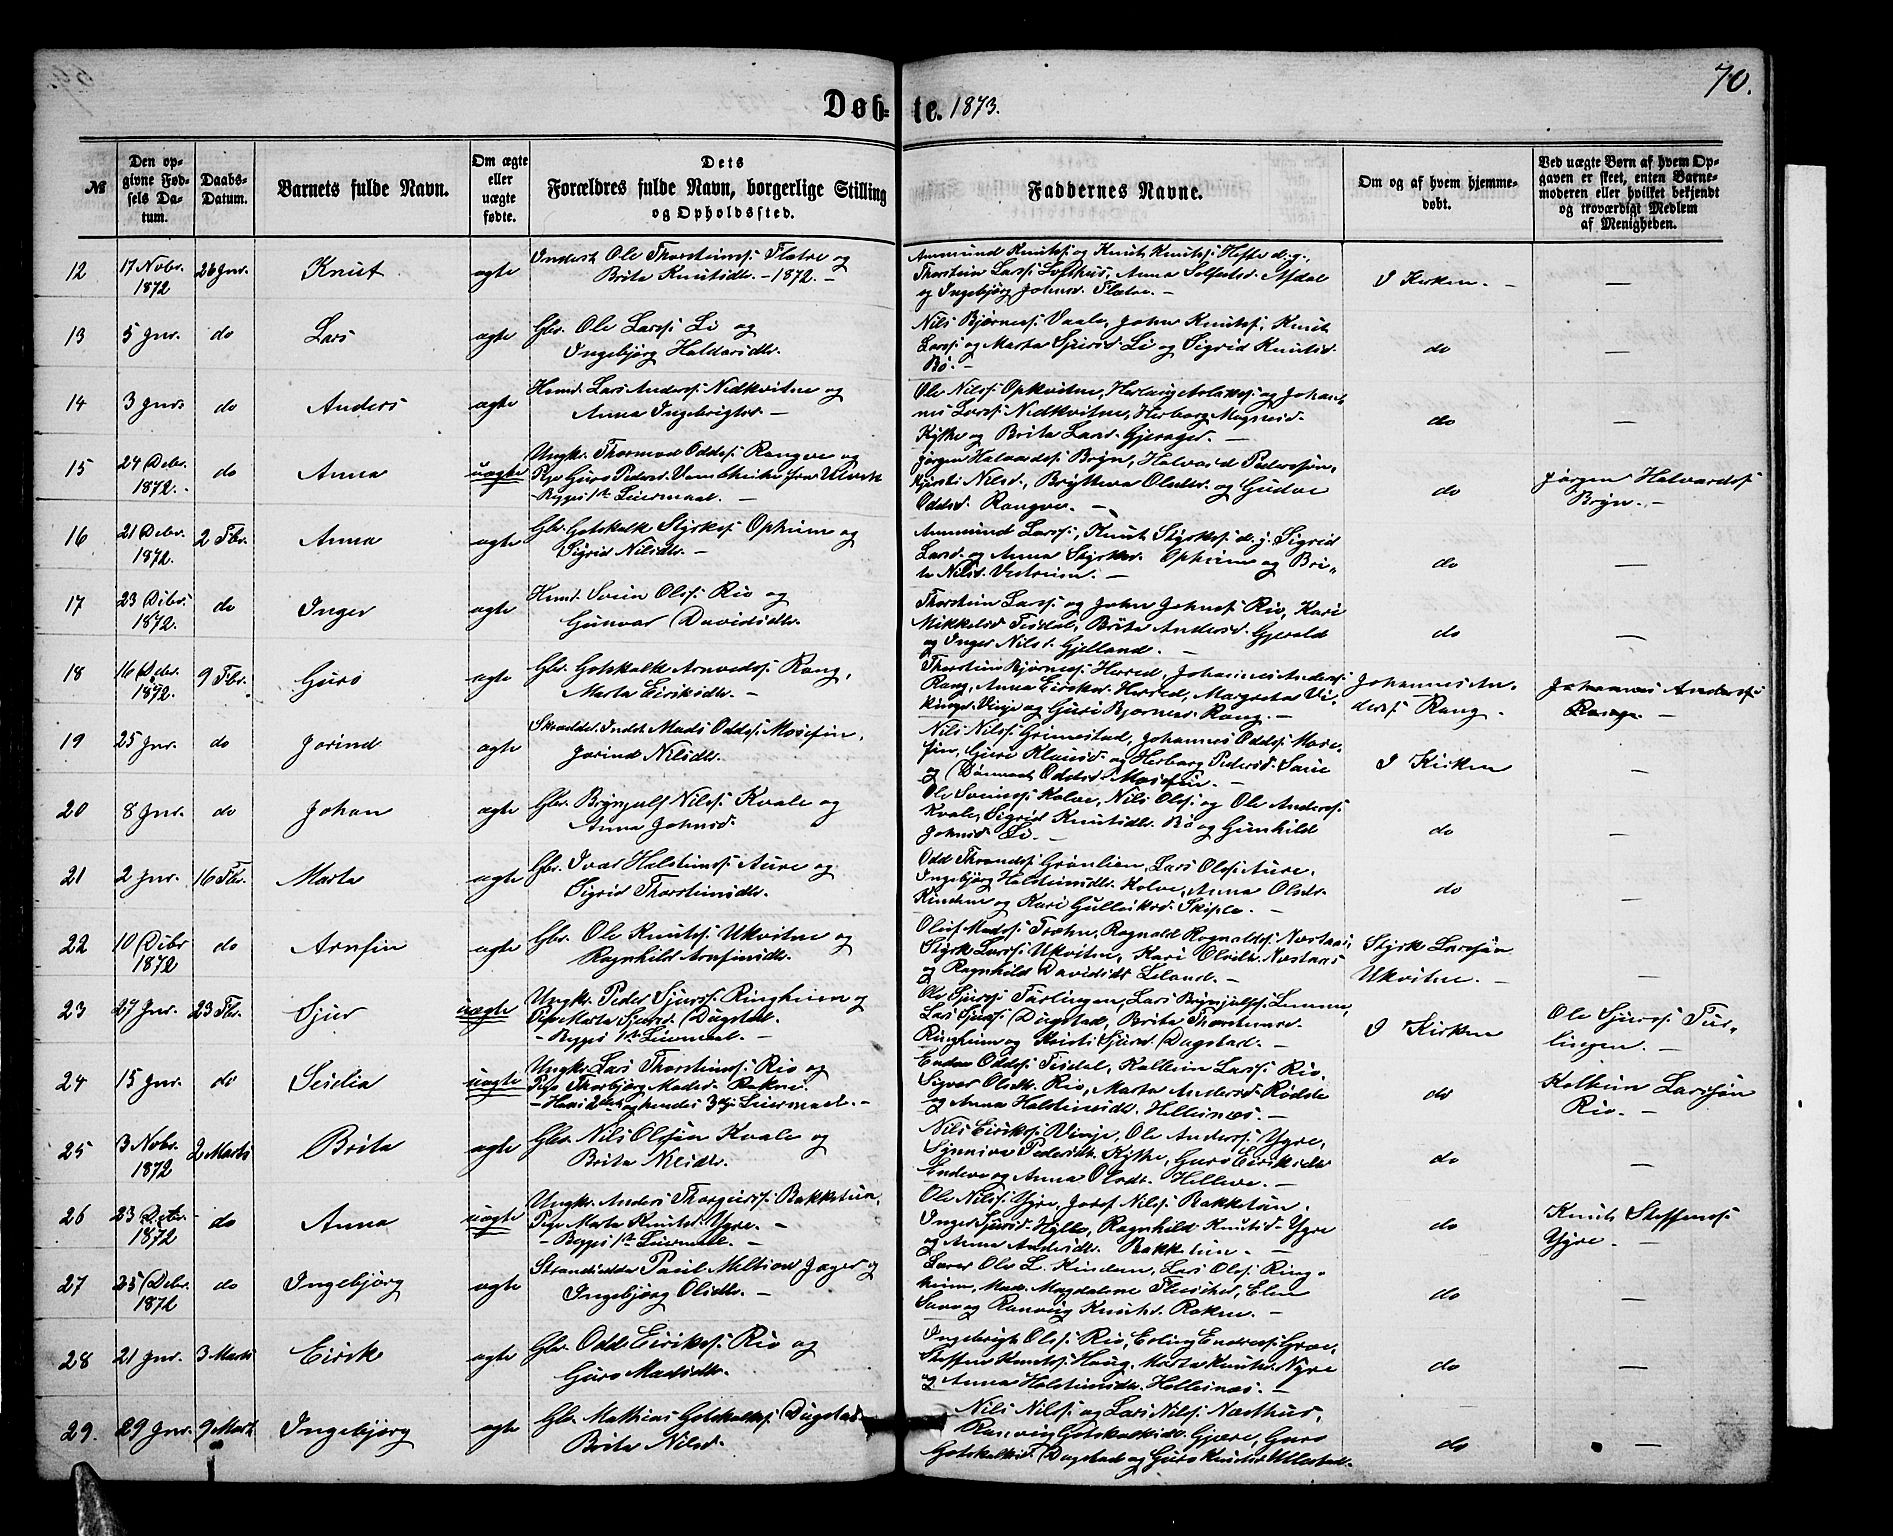 70.
Døb-te. 1873.
№
Den opgivne Fødsels Datum.
Daabs-Datum.
Barnets fulde Navn.
Om ægte eller uægte fødte.
Dets Forældres fulde Navn, borgerlige Stilling og Opholdssted.
Faddernes Navne.
Om og af hvem hjemmedøbt.
Ved uægte Børn af hvem Opgaven er skeet, enten Barnemoderen eller hvilket bekjendt og troværdigt Medlem af Menigheden.
12 17 Nobr. 1872 26 Jnr. Knut ægte
Inderst Ole Thorsteinss: Flatre og
Brita Knutsdtr. - 1872. -
Thorstein Larss: Lofthus, Anna
og Ingebjørg Johnsd. Flatre. -
I Kirken. - —
13 5 Jnr. do Lars ægte
Gbr. Ole Larss: Li og
Ingebjørg Haldorsdtr.
Nils Bjørness: Vaale, John Knutss: Knut
Larss: og Marta Sjursd. Li og Sigrid Knutsd.
Bø. -
do —
14 3 Jnr. do Anders ægte
Huusm. Lars Anderss: Nedkvitne og
Anna Ingebrigtsd. -
Ole Nilss: Opkvitne, og Johan-
nes Larss: Nedkvitne, Herborg Magnesd.
Kytke og Brita Larsd. Gjerager. -
do —
15 24 Debr. 1872. do Anna uægte
Ungkr. Thormod Oddss: Rongve og
Pige Guro Pedersd. fra Ulvik
- Begges 1st Leiermaal. -
Jørgen Halvardss: Bryn, Halvard Pederssøn,
Kjersti Nilsd., Brytteva Olsdtr. og Gudve
Oddsd. Rongve. -
do
Jørgen Halvardss:
Bryn. -
16 21 Debr. 1872. 2 Fbr. Anna ægte
Gbr. Gotskalk Styrkss: Opheim og
Sigrid Nilsdtr. -
Ammund Larss:, Knut Styrkss: d. g. Sigrid
Larsd. og Anna Styrksd. Opheim og Bri-
ta Nilsd. Vestreim. -
do —
17 23 Debr. 1872. do Inger ægte
Huusm. Svein Olss: Rio og
Gunvor Davidsdtr.
Thorstein Larss: og John Johnss: Rio, Kari
Mikkelsd. Tesdal, Brita Andersd. Gjerald
og Inger Nilsd. Gjelland. -
do —
18 16 Debr. 1872. 9 Fbr. Guro ægte
Gbr. Gotskalk Arnvedss: Rong,
Marta Eiriksdtr. -
Thorstein Bjørness: Herred, Johannes Anderss:
Rong, Anna Eiriksd. Herred, Margreta Vi-
kingsd. Vinje og Guri Bjørnesd. Rong. -
Johannes An-
derss: Rong -
Johannes Anderss:
Ronge. -
19 25 Jnr. do Jorind ægte
Skrædder, Inderst. Mads Oddss: Mosefin,
Jorind Nilsdtr.
Nils Nilss: Grimestad, Johannes Oddss: Mose-
fin, Guro Klausd. og Herborg Pedersd. Saue
og Oddsd. Mosefin. -
I Kirken —
20 8 Jnr. do Johan ægte
Gbr. Brynjulf Nilss: Kvale og
Anna Johnsd.
Ole Sveinss: Kolve, Nils Olss: og Ole Anderss:
Kvale, Sigrid Knutsdtr. Bø og Gunhild
Johnsd. Li. -
do —
21 2 Jnr. 16 Fbr. Marta ægte
Gbr. Ivar Halsteinss: Aure og
Sigrid Thorsteinsdtr.
Odd Throndss: Grønlien, Lars Olss: Aure,
Ingebjørg Halsteinsdtr. Kolve, Anna Olsdtr.
Kindem og Kari Gulleiksd. Skiple. -
do —
22 10 Debr 1872 do Arnfin ægte
Gbr. Ole Knutss: Ukvitne og
Ragnhild Arnfinsdtr.
Oluf Madss: Træhn, Rognald Rognaldss: Næstaas,
Styrk Larss: Ukvitne, Kari Olsdtr. Næstaas
og Ragnhild Davidsdtr. Leland. -
Styrk Larssøn
Ukvitne. -
—
23 27 Jnr. 23 Fbr. Sjur uægte
Ungkr. Peder Sjurss: Ringheim og
Pige Marta Sjursd. Dugstad.
- Begges 1st Leiermaal. -
Ole Sjurss: Tirlingen, Lars Brynjulfss: Lemme,
Lars Sjurss: Dugstad, Brita
Ringheim og Kristi Sjursd. Dugstad. -
I Kirken
Ole Sjurss:
lingen. -
24 15 Jnr. do Seselia uægte
Ungkr. Lars Thorsteinss: Rio og
Pige Thorbjørg Madsd. Rokne.
- Hans 2det og hendes 3die Leiermaal. -
Endre Oddss: Tesdal, Kolbein Larss: Rio,
Sigvor Olsdtr. Rio, Marta Andersd. Rødde
og Anna Halsteinsdtr. Hellesnæs. -
do
Kolbein Larssøn
Rio. -
25 3 Nobr. 1872 2 Marts Brita ægte
Gbr. Nils Olssøn Kvale og
Brita Nilsdtr.
Nils Eirikss: Vinje, Ole Anderss: Ygre,
Synneva Pedersdtr. Kytke, Guro Eiriksdtr
Endeve og Anna Olsdtr. Helleve. -
do —
26 23 Debr. 1872 do Anna uægte
Ungkr. Anders Thorgeirss: Bakketun,
Pige Marta Knutsd. Ygre. -
- Begges 1st Leiermaal. -
Ole Nilss: Ygre, Josef Nilss: Bakketun,
Inger Sjursd. Hylle, Ragnhild Knutsd. Ygre
og Anna Andersdtr. Bakketun. -
do
Knut Steffenss:
Ygre. -
27 25 Debr. 1872 do Ingebjørg ægte
Strandsidder Paul Meltior Jæger og
Ingebjørg Olsdtr. -
Lærer Ole L. Kindem, Lars Olss: Ring-
heim, Mad. Magdalene Fleischer, Elen
Saue og Ranveig Knutsd. Rokne. -
do —
28 21 Jnr. 3 Marts Eirik ægte
Gbr. Odd Eirikss: Rio og
Guro Madsdtr.
Ingebrigt Olss: Rio, Erling Endress: Grøe,
Steffen Knutss: Haug, Marta Knutsd. Nyre
og Anna Halsteinsdtr. Hellesnæs. -
do —
29. 29 Jnr. 9 Marts Ingebjørg ægte
Gbr. Mathias Gotskalkss: Dugstad
Brita Nilsd.
Nils Nilss: og Lars Nilss: Næsthus,
Ranveig Gotskalksdtr. Gjære, Guro
Gotskalksd. Dugstad og Guro Knutsd. Ullestad.
do —